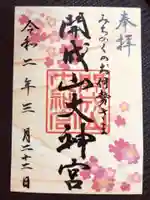 奉拝
みちのくのお伊勢さま
開成山大神宮
令和二年三月二十二日